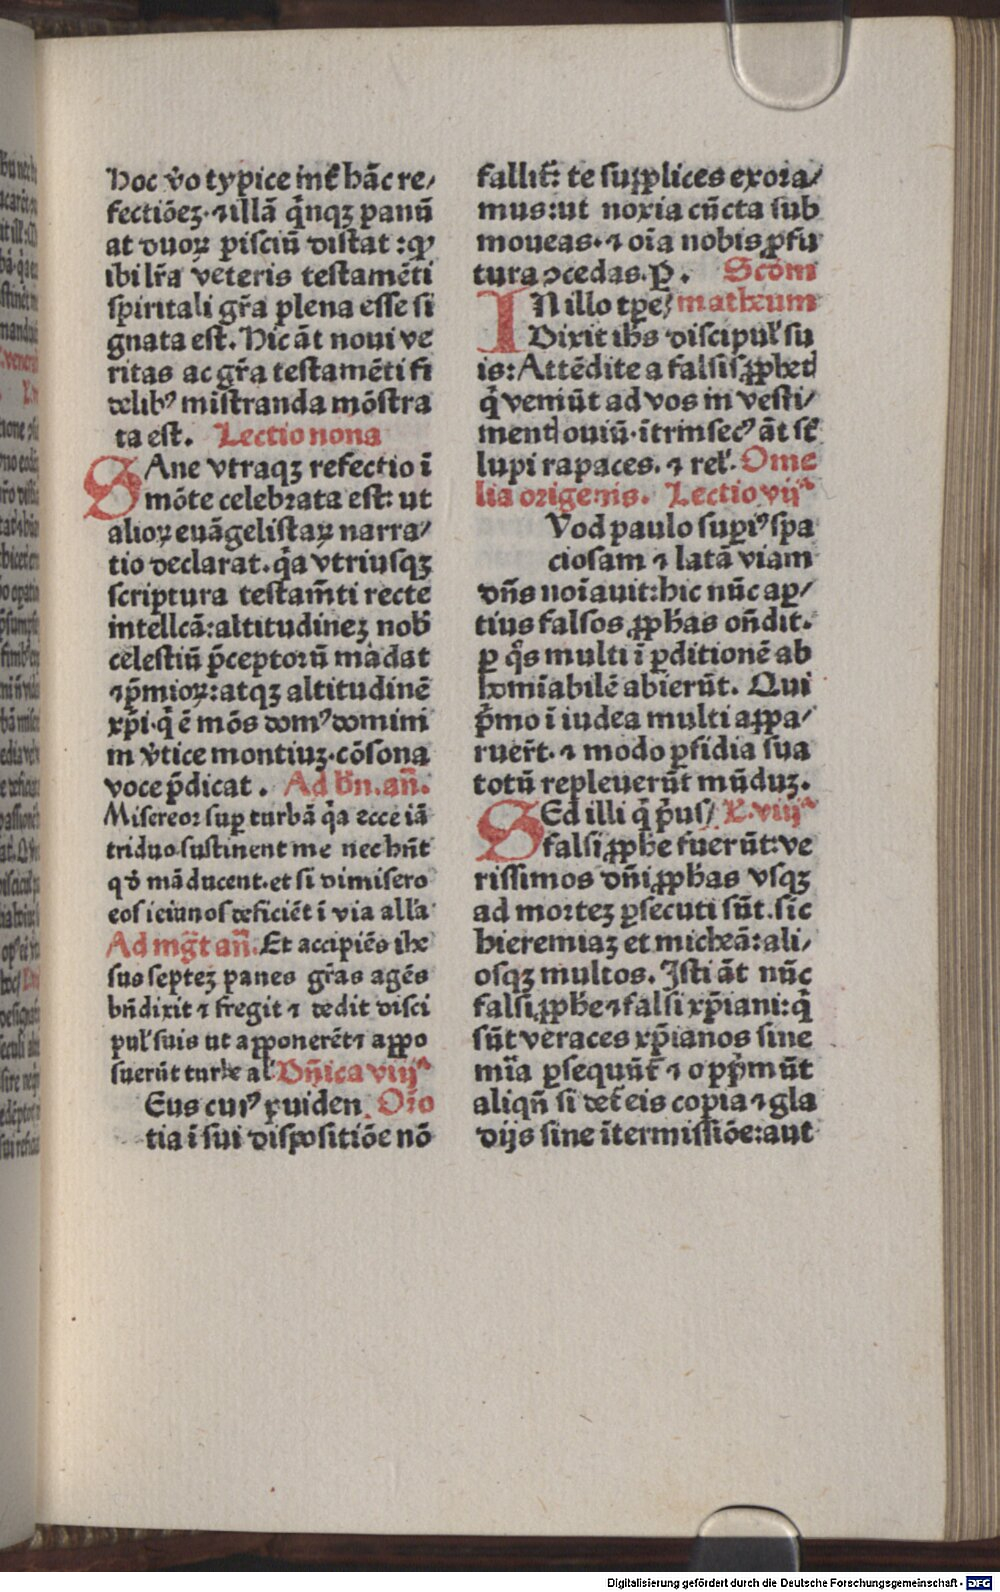 Hoc v̉o typice int̉ hāc re⸗
fectiōeꝫ·⁊ illā q̄nqꝫ panū
at duoꝝ pisciū distat:qꝫ
ibi lr̄a veteris testamēti
spiritali gr̄a plena esse si
gnata est. Hic āt noui ve
ritas ac gr̄a testamēti fi
delibꝰ mīstranda mōstra
ta est. Lectio nona
SAne vtraqꝫ refectio ī
mōte celebrata est: ut
alioꝝ euāgelistaꝝ narra⸗
tio declarat. q̄a vtriusqꝫ
scriptura testam̄ti recte
intellcā:altitudineꝫ nob̄
celestiū p̄ceptorū mādat
⁊ p̄mioꝝ:atqꝫ altitudinē
xp̄i·q̄ ē mōs domꝰ domini
in v̉tice montiuꝫ·cōsona
voce p̄dicat. Ad bn̄.an̄.
Misereor suꝑ turbā q̄a ecce iā
triduo sustinent me nec hn̄t
qd̓ māducent.et si dimisero
eos ieiunos deficiēt ī via all̓a
Ad mg̃t an̄. Et accipiēs ihe
sus septeꝫ panes gr̄as agēs
bn̄dixit ⁊ fregit ⁊ dedit disci
pul̓ suis ut apponerēt ⁊ appo
suerūt turbe al̓ Dn̄ica viijᵃ
Eus cuiꝰ ꝓuiden Oro
tia ī sui dispositiōe nō
fallit̄: te supplices exora⸗
mus:ut noxia cūcta sub
moueas·⁊ oīa nobis ꝓfu
tura ↄcedas.ꝑ. Scd̄m
IN illo tp̄e matheum
Dixit ihs̄ discipul̓ su
is:Attēdite a falsis ꝓphet
q̄ veniūt ad vos in vesti⸗
ment ouiū·ītrinsecꝰ āt st̄
lupi rapaces.⁊ rel̓. Ome
lia origenis. Lectio vijᵃ
Vod paulo suꝑiꝰ spa
ciosam ⁊ latā viam
dn̄s noīauit:hic nūc aꝑ⸗
tius falsos ꝓph̄as on̄dit.
ꝑ q̄s multi ī ꝑditionē ab
homīabilē abierūt. Qui
p̄mo ī iudea multi appa⸗
ruer̄t.⁊ modo ꝑfidia sua
totū repleuerūt mūduꝫ.
SEd illi q̄ p̄us L.viijᵃ
falsi ꝓph̄e fuerūt:ve
rissimos dn̄i ꝓph̄as vsqꝫ
ad morteꝫ ꝑsecuti sūt.sic
hieremiaꝫ et micheā:ali⸗
osqꝫ multos. Isti āt nūc
falsi ꝓph̄e ⁊ falsi xp̄iani:q̄
sūt veraces xp̄ianos sine
mīa ꝑsequūt̄ ⁊ opp̄mūt
aliqn̄ si det̄ eis copia ⁊ gla
dijs sine ītermissiōe:aut
Digitalisierung gefördert durch die Deutsche Forschungsgemeinschaft - DFG